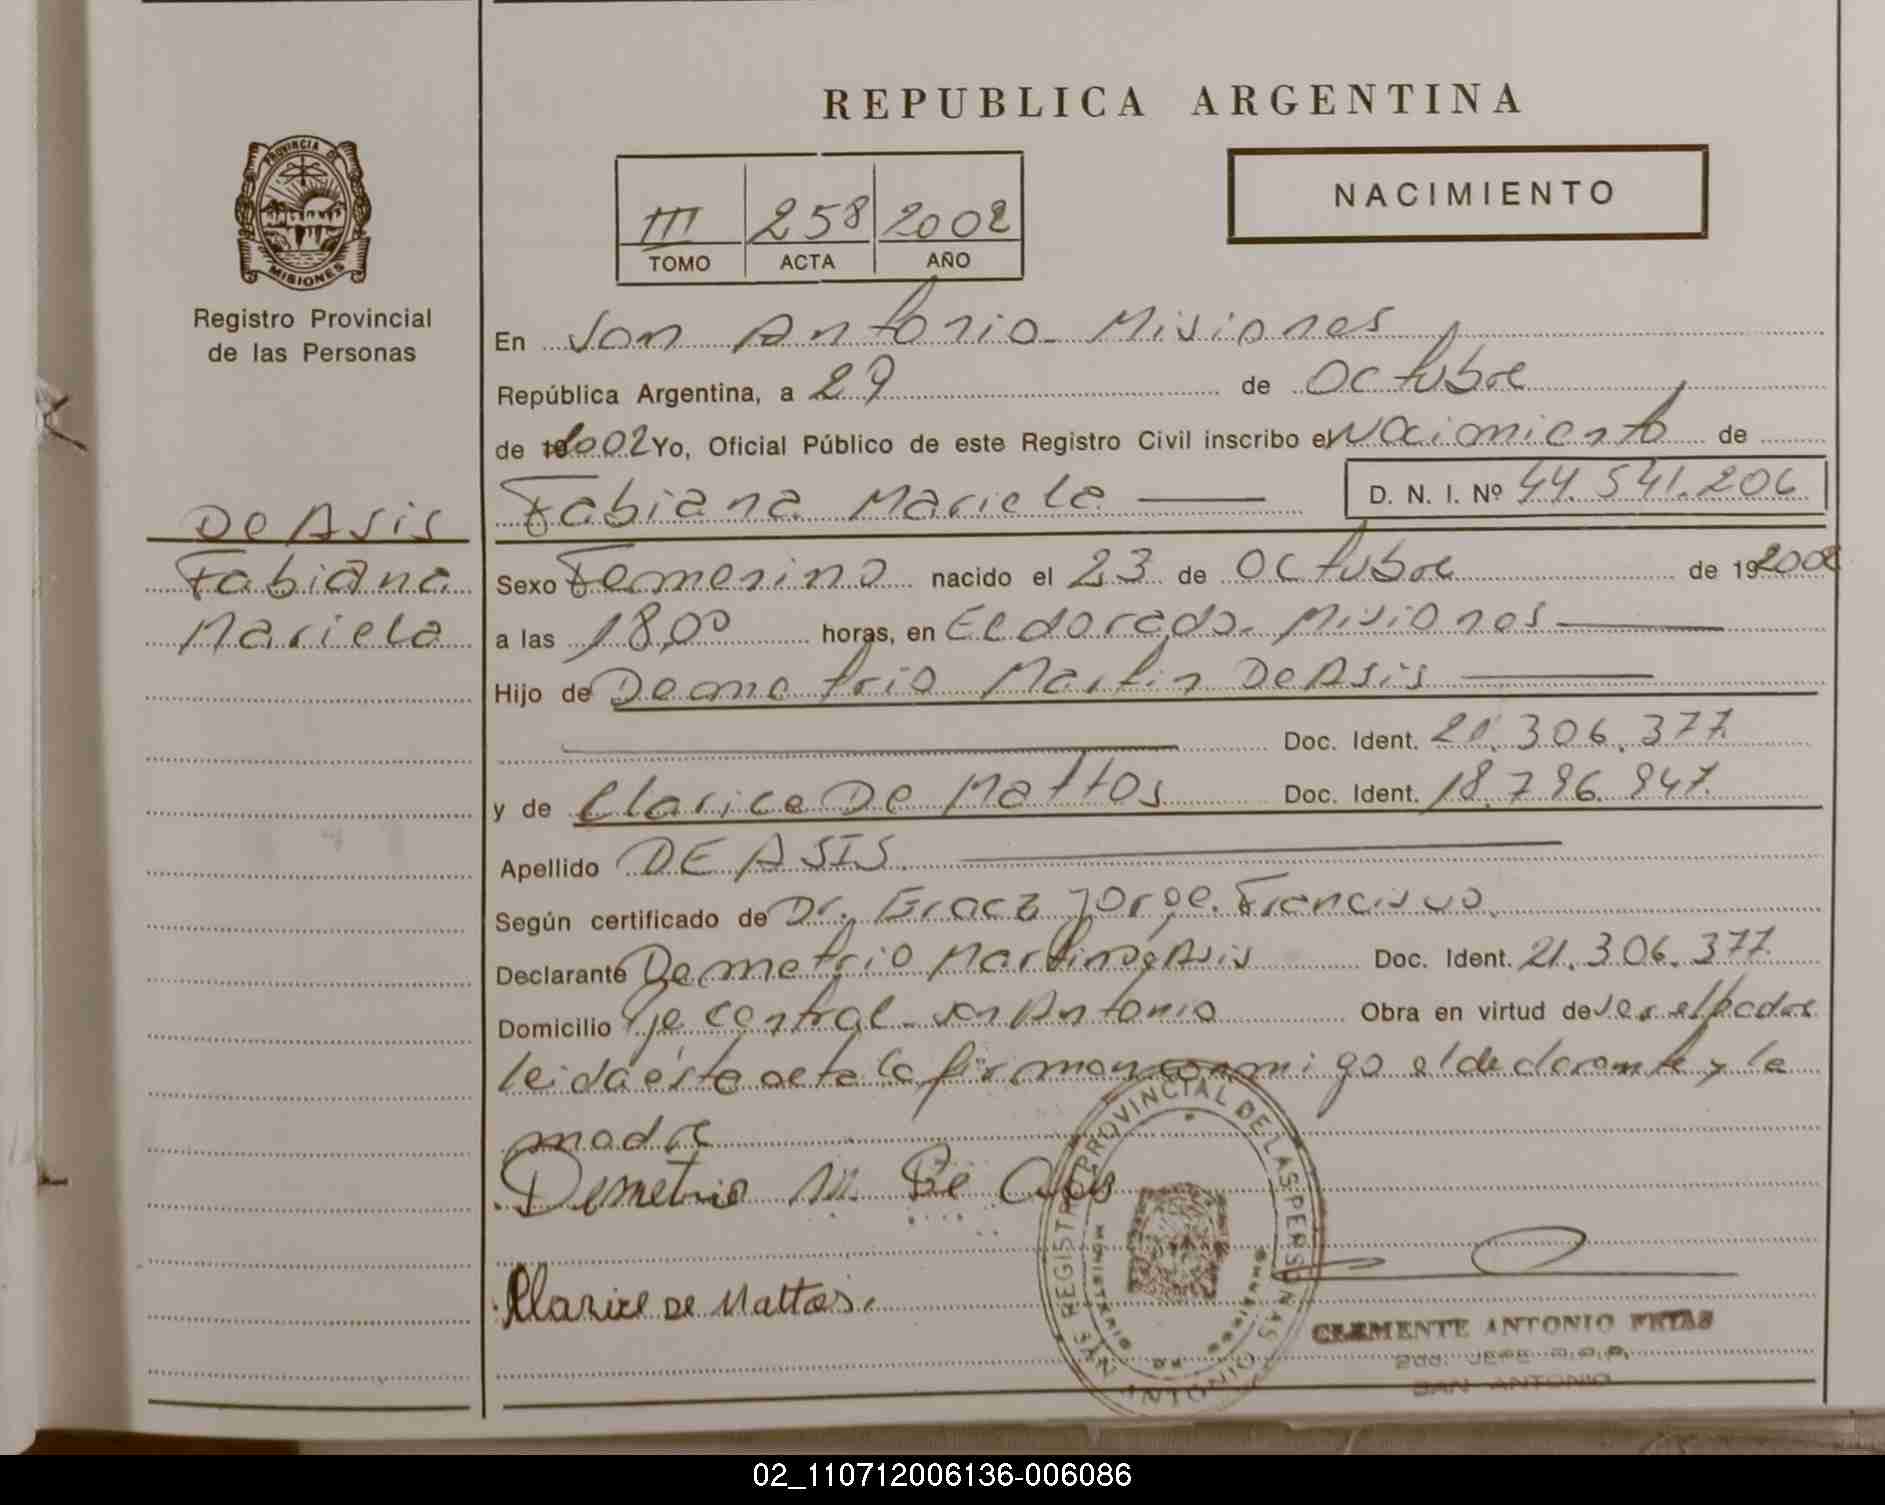 REPUBLICA ARGENTINA
PROVINCIA DE MISIONES
Registro Provincial
de las Personas
III 258 2002
TOMO ACTA AÑO
NACIMIENTO
En San Antonio - Misiones
República Argentina, a 29 de Octubre
de 2002 Yo, Oficial Público de este Registro Civil inscribo el Nacimiento de
Fabiana Mariela D. N. I. Nº 44.541.206
De Asis
Fabiana
Mariela
Sexo Femenino nacido el 23 de Octubre de 192002
a las 18,00 horas, en Eldorado - Misiones
Hijo de Demetrio Martin De Asis
Doc. Ident. 21.306.377
y de Clarice De Mattos Doc. Ident. 18.796.947
Apellido DE ASIS
Según certificado de Dr. Jorge Francisco
Declarante Demetrio Martin De Asis Doc. Ident. 21.306.377
Domicilio Pje central - San Antonio Obra en virtud de
leida esta acta la firman conmigo el declarante y la
madre
Demetrio M. De Asis
Clarice De Mattos.
REGISTRO PROVINCIAL DE LAS PERSONAS
SAN ANTONIO
CLEMENTE ANTONIO FRIAS
SAN ANTONIO
02_110712006136-006086